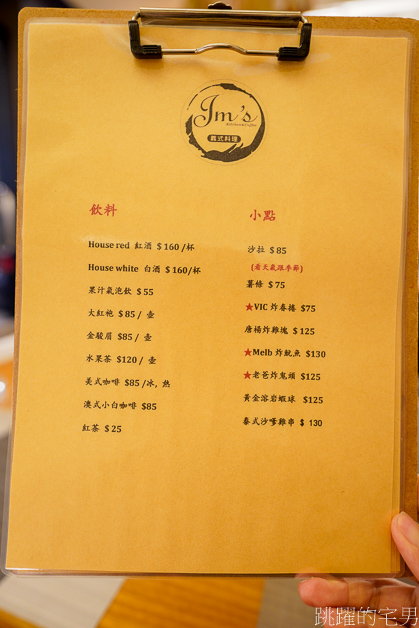 Jm's
義式料理
飲料
House red 紅酒 $160 /杯
House white 白酒 $160/杯
果汁氣泡飲 $55
大紅袍 $85 / 壺
金駿眉 $85 / 壺
水果茶 $120 / 壺
美式咖啡 $85 /冰, 熱
澳式小白咖啡 $85
紅茶 $25
小點
沙拉 $85
(看天氣跟季節)
薯條 $75
★VIC 炸春捲 $75
唐楊炸雞塊 $125
★Melb 炸魷魚 $130
★老爸炸鬼頭 $125
黃金溶岩蝦球 $125
泰式沙嗲雞串 $ 130
跳躍的宅男